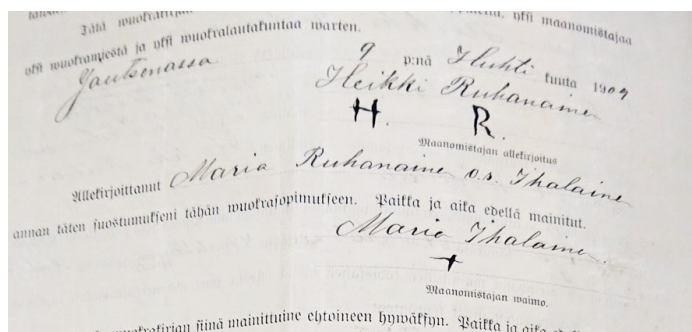 Tätä wuokrakirjaa yksi maanomistajaa
yksi wuokramiestä ja yksi wuokralautakuntaa warten.
Jautsenassa 9 p:nä Huhti kuuta 1909
Heikki Ruhanainen
H. R.
Maanomistajan allekirjoitus
Allekirjoittanut Maria Ruhanaine o.s. Ihalaine
annan täten suostumukseni tähän wuokrasopimukseen. Paikka ja aika edellä mainitut.
Maria Ihalaine.
+
Maanomistajan waimo.
wuokrakirjan siinä mainittuine ehtoineen hywäksyn. Paikka ja aika